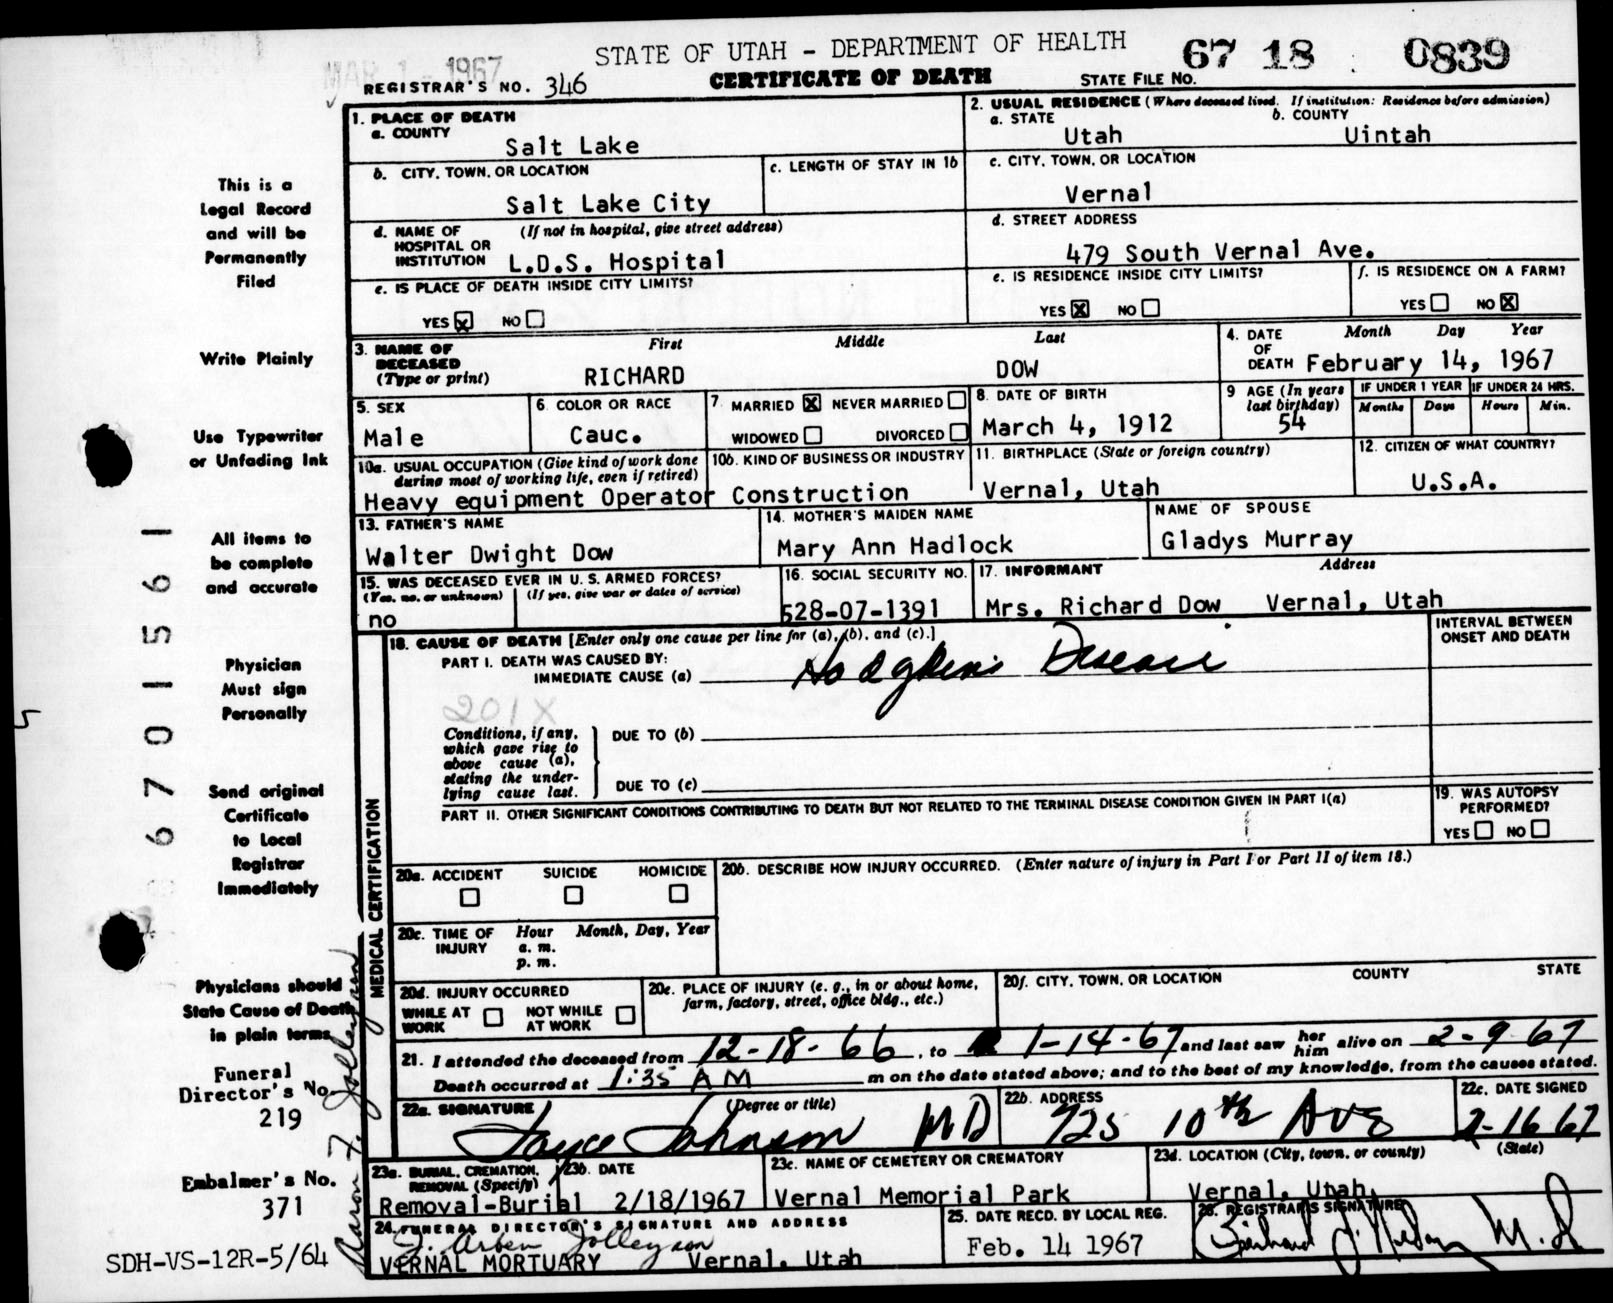 STATE OF UTAH - DEPARTMENT OF HEALTH
67 18 0839
MAR 1 - 1967
REGISTRAR'S NO. 346
CERTIFICATE OF DEATH
STATE FILE NO.
1. PLACE OF DEATH
a. COUNTY
Salt Lake
2. USUAL RESIDENCE (Where deceased lived. If institution: Residence before admission)
a. STATE
Utah
b. COUNTY
Uintah
b. CITY, TOWN, OR LOCATION
Salt Lake City
c. LENGTH OF STAY IN 1b
c. CITY, TOWN, OR LOCATION
Vernal
d. NAME OF HOSPITAL OR INSTITUTION
(If not in hospital, give street address)
L.D.S. Hospital
d. STREET ADDRESS
479 South Vernal Ave.
e. IS PLACE OF DEATH INSIDE CITY LIMITS?
YES X NO
e. IS RESIDENCE INSIDE CITY LIMITS?
YES X NO
f. IS RESIDENCE ON A FARM?
YES NO X
3. NAME OF DECEASED
(Type or print)
First Middle Last
RICHARD DOW
4. DATE OF DEATH
Month Day Year
February 14, 1967
5. SEX
Male
6. COLOR OR RACE
Cauc.
7. MARRIED X NEVER MARRIED
WIDOWED DIVORCED
8. DATE OF BIRTH
March 4, 1912
9 AGE (In years last birthday)
54
IF UNDER 1 YEAR
Months Days
IF UNDER 24 HRS.
Hours Min.
10a. USUAL OCCUPATION (Give kind of work done during most of working life, even if retired)
Heavy equipment Operator
10b. KIND OF BUSINESS OR INDUSTRY
Construction
11. BIRTHPLACE (State or foreign country)
Vernal, Utah
12. CITIZEN OF WHAT COUNTRY?
U.S.A.
13. FATHER'S NAME
Walter Dwight Dow
14. MOTHER'S MAIDEN NAME
Mary Ann Hadlock
NAME OF SPOUSE
Gladys Murray
15. WAS DECEASED EVER IN U. S. ARMED FORCES?
(Yes, no, or unknown) (If yes, give war or dates of service)
no
16. SOCIAL SECURITY NO.
528-07-1391
17. INFORMANT Address
Mrs. Richard Dow Vernal, Utah
18. CAUSE OF DEATH [Enter only one cause per line for (a), (b), and (c).]
PART I. DEATH WAS CAUSED BY:
IMMEDIATE CAUSE (a) Hodgkin's Disease
INTERVAL BETWEEN ONSET AND DEATH
201X
Conditions, if any, which gave rise to above cause (a), stating the underlying cause last.
DUE TO (b)
DUE TO (c)
PART II. OTHER SIGNIFICANT CONDITIONS CONTRIBUTING TO DEATH BUT NOT RELATED TO THE TERMINAL DISEASE CONDITION GIVEN IN PART I(a)
19. WAS AUTOPSY PERFORMED?
YES NO
MEDICAL CERTIFICATION
20a. ACCIDENT SUICIDE HOMICIDE
20b. DESCRIBE HOW INJURY OCCURRED. (Enter nature of injury in Part I or Part II of item 18.)
20c. TIME OF INJURY
Hour Month, Day, Year
a. m.
p. m.
20d. INJURY OCCURRED
WHILE AT WORK NOT WHILE AT WORK
20e. PLACE OF INJURY (e. g., in or about home, farm, factory, street, office bldg., etc.)
20f. CITY, TOWN, OR LOCATION COUNTY STATE
21. I attended the deceased from 12-18-66, to 1-14-67 and last saw her him alive on 2-9-67
Death occurred at 1:35 AM m on the date stated above; and to the best of my knowledge, from the causes stated.
22a. SIGNATURE (Degree or title)
Joyce Johnson MD
22b. ADDRESS
725 10th Ave
22c. DATE SIGNED
2-16 67
23a. BURIAL, CREMATION, REMOVAL (Specify)
Removal-Burial
23b. DATE
2/18/1967
23c. NAME OF CEMETERY OR CREMATORY
Vernal Memorial Park
23d. LOCATION (City, town, or county) (State)
Vernal, Utah
24. FUNERAL DIRECTOR'S SIGNATURE AND ADDRESS
VERNAL MORTUARY Vernal, Utah
25. DATE RECD. BY LOCAL REG.
Feb. 14 1967
26. REGISTRAR'S SIGNATURE
This is a
Legal Record
and will be
Permanently
Filed
Write Plainly
Use Typewriter
or Unfading Ink
All items to
be complete
and accurate
Physician
Must sign
Personally
Send original
Certificate
to Local
Registrar
Immediately
Physicians should
State Cause of Death
in plain terms
Funeral
Director's No.
219
Embalmer's No.
371
SDH-VS-12R-5/64
6701561